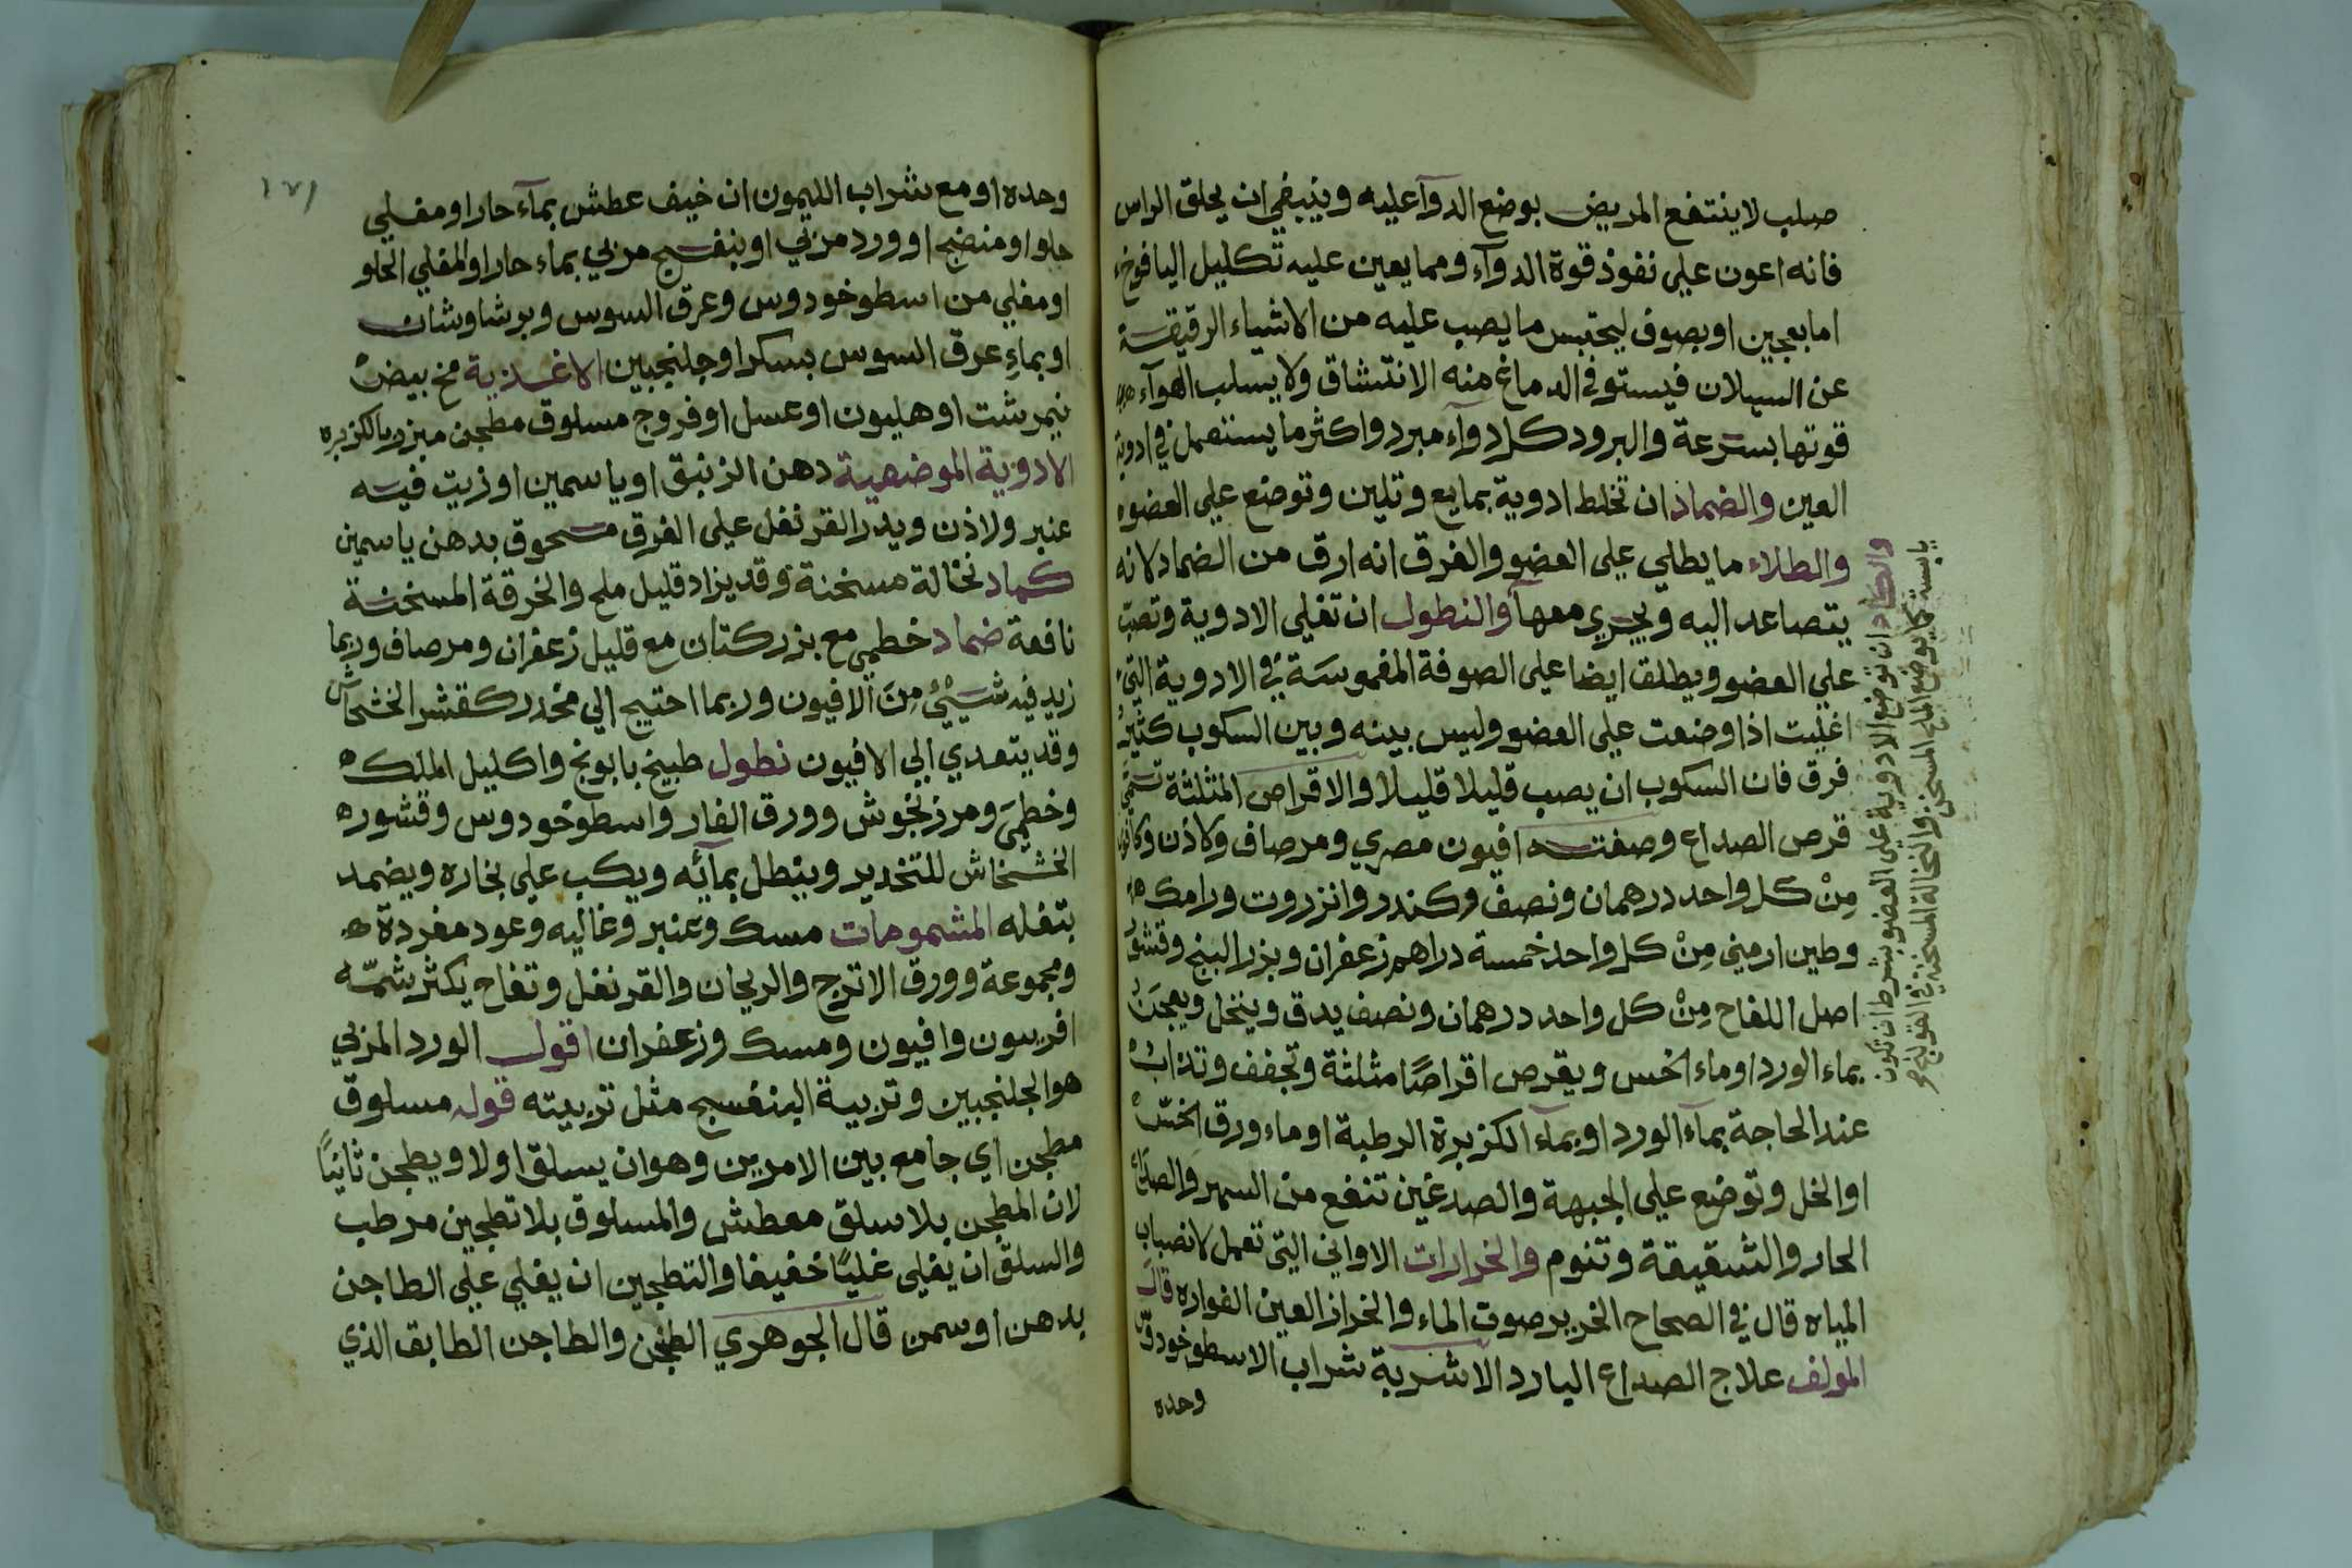 صلب لا ينتفع المريض بوضع الدوآ عليه وينبغي ان يحلق الراس
فانه اعون علي نفوذ قوة الدوآء ومما يعين عليه تكليل اليافوخ
اما بعجين او بصوف ليحتبس ما يصب عليه من الاشياء الرقيقة
عن السيلان فيستوفي الدماغ منه الانتشاق ولا يسلب الهوآء
قوتها بسرعة والبرود كل دوآء مبرد واكثر ما يستعمل في ادوية
العين والضماد ان تخلط ادوية بمايع وتلين وتوضع علي العضو
والطلاء ما يطلي علي العضو والفرق انه ارق من الضماد لانه
يتصاعد اليه ويجري معهآ والنطول ان تغلي الادوية وتصب
علي العضو ويطلق ايضا علي الصوفة المغموسة في الادوية التي
اغليت اذا وضعت علي العضو وليس بينه وبين السكوب كثير
فرق فان السكوب ان يصب قليلا قليلا والاقراص المثلثة تسمي
قرص الصداع وصفته افيون مصري ومر صاف ولاذن
مِنْ كل واحد درهمان ونصف وكندر وانزروت ورامك
وطين ارمني مِنْ كل واحد خمسة دراهم زعفران وبزر البنج وقشور
اصل اللفاح مِنْ كل واحد درهمان ونصف يدق وينخل ويعجن
بماء الورد او ماء الخس ويقرص اقراصًا مثلثة وتجفف وتذاب
عند الحاجة بمآء الورد او بمآء الكزبرة الرطبة او ماء ورق الخسّ
او الخل وتوضع علي الجبهة والصدغين تنفع من السهر والصداع
الحار والشقيقة وتنوم والخرارات الاواني التي تعمل لانصباب
المياه قال في الصحاح الخرير صوت الماء والخرار العين الفواره قال
المولف علاج الصداع البارد الاشربة شراب الاسطوخودوس
وحده
والكماد ان توضع الادوية علي العضو بشرط ان تكون
يابسة كما يوضع الملح المسخن والنخالة المسخنة في القولنج
١٧١
وحده او مع شراب الليمون ان خيف عطش بمآء حار او مغلي
حلو او منضج او ورد مربي او بنفسج مربي بماء حار او المغلي الحلو
او مغلي من اسطوخودوس وعرق السوس وبرشاوشان
او بماءِ عرق السوس بسكر او جلنجبين الاغذية مخ بيض
نيمرشت او هليون او عسل او فروج مسلوق مطجن مبزر بالكزبره
الادوية الموضعية دهن الزنبق او ياسمين او زيت فيه
عنبر ولاذن ويدر القرنفل علي الفرق مسحوق بدهن ياسمين
كماد نخالة مسخنة وقد يزاد قليل ملح والخرقة المسخنة
نافعة ضماد خطمي مع بزر كتان مع قليل زعفران ومر صاف وربما
زيد فيه شَيْئٌ مِنَ الافيون وربما احتيج الي مخدر كقشر الخشخاش
وقد يتعدي الي الافيون نطول طبيخ بابونج واكليل الملك
وخطميَ ومرزنجوش وورق الغار واسطوخودوس وقشور
الخشخاش للتخدير وينطل بمآئه ويكب علي بخاره ويضمد
بتفله المشمومات مسك وعنبر وغاليه وعود مفردة
ومجموعة وورق الاترج والريحان والقرنفل وتفاح يكثر شمّه
افربيون وافيون ومسك وزعفران اقول الورد المربي
هو الجلنجبين وتربية البنفسج مثل تربيته قوله مسلوق
مطجن اي جامع بين الامرين وهو ان يسلق اولا ويطجن ثانيًا
لان المطجن بلا سلق معطش والمسلوق بلا تطجين مرطب
والسلق ان يغلي غليًا خفيفا والتطجين ان يغلي علي الطاجن
بدهن او سمن قال الجوهري الطجن والطاجن الطابق الذي